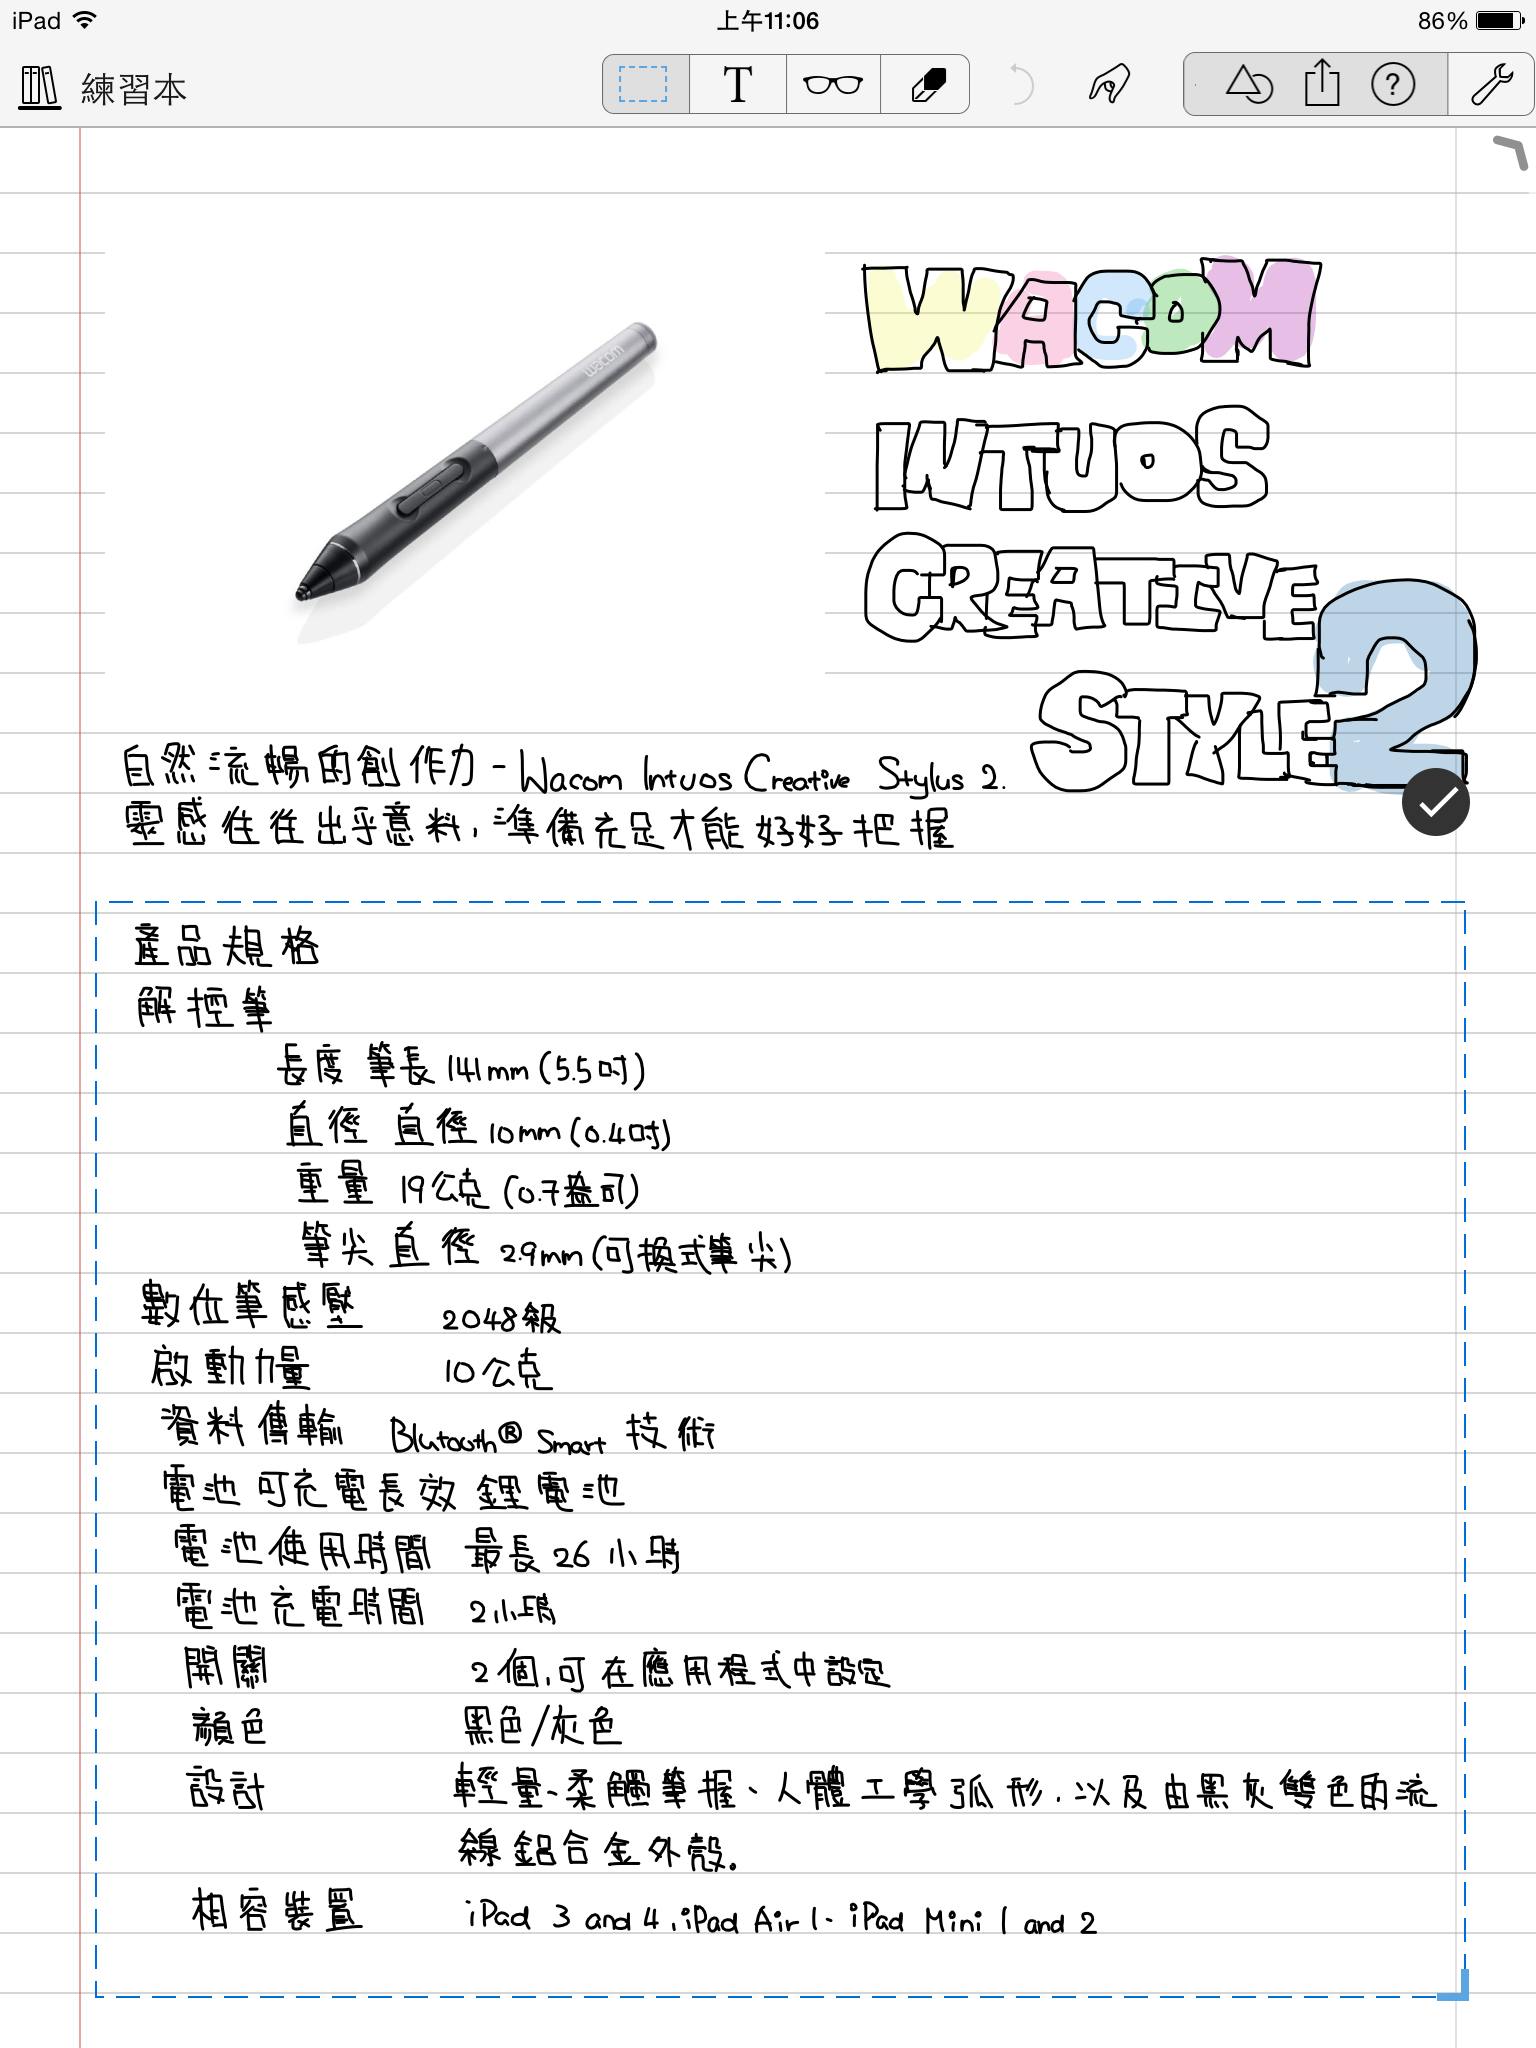 iPad 上午11:06 86%
練習本 T ?
wacom
WACOM
INTUOS
CREATIVE
STYLE2
自然流暢的創作力 - Wacom Intuos Creative Stylus 2.
靈感往往出乎意料，準備充足才能好好把握
產品規格
解控筆
長度 筆長 141mm (5.5吋)
直徑 直徑 10mm (0.4吋)
重量 19公克 (0.7盎司)
筆尖直徑 2.9mm (可換式筆尖)
數位筆感壓 2048級
啟動力量 10公克
資料傳輸 Blutooth® Smart 技術
電池 可充電長效鋰電池
電池使用時間 最長26小時
電池充電時間 2小時
開關 2個，可在應用程式中設定
顏色 黑色/灰色
設計 輕量、柔觸筆握、人體工學弧形，以及由黑灰雙色的流
線鋁合金外殼。
相容裝置 iPad 3 and 4，iPad Air 1、iPad Mini 1 and 2